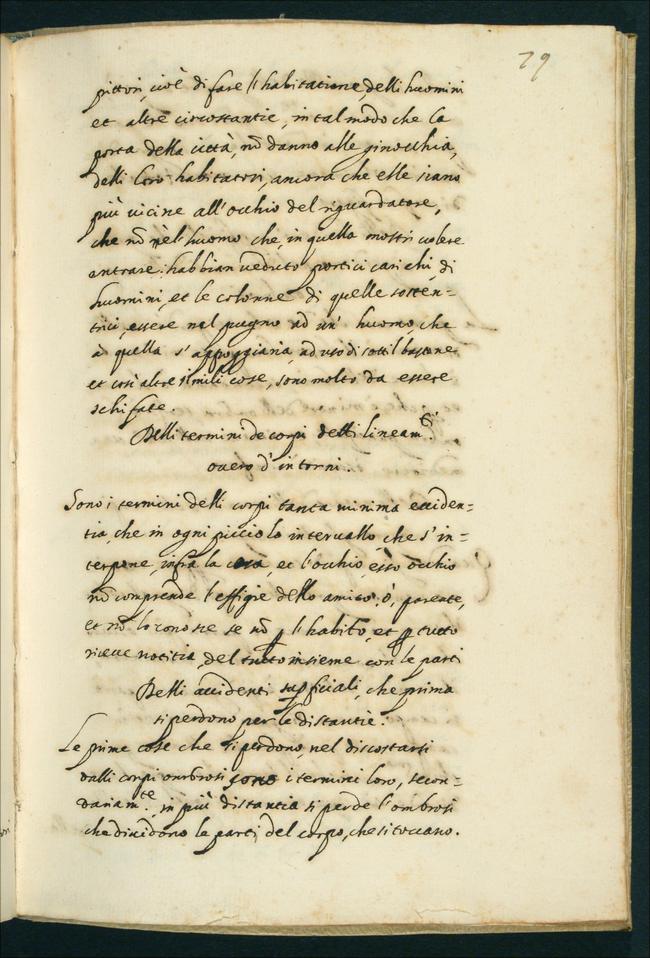 79
pittori, cioè di fare l'habitatione delli huomini
et altre circostantie, in tal modo che la
porta della città, nõ danno alle ginocchia,
delli loro habitatori, ancora che elle siano
più vicine all'occhio del riguardatore,
che nõ è l'huomo che in quella mostri volere
entrare: habbian veduto portici carichi, di
huomini, et le colonne di quelle sosten=
trici, essere nel pugno ad un' huomo, che
à quella s'appoggiaria, ad uso di sottil bastone
et così altre simili cose, sono molto da essere
schifate.
Delli termini de corpi detti lineam.ti
overo d'intorni.
Sono i termini delli corpi tanta minima eviden=
tia, che in ogni picciolo intervallo che s'in=
terpone, infra la cosa, et l'occhio, esso occhio
nõ comprende l'effigie dello amico, ò, parente,
et nõ lo conosce se nõ ꝑ l'habito, et ꝑ tutto
riceve notitia del tutto insieme con le parti
Delli accidenti suꝑficiali, che prima
si perdono per le distantie.
Le prime cose che si perdono, nel discostarsi
dalli corpi ombrosi sono i termini loro, secon=
dariam.te in più distantia si perde l'ombrosi
che dividono le parti del corpo, che si toccano.